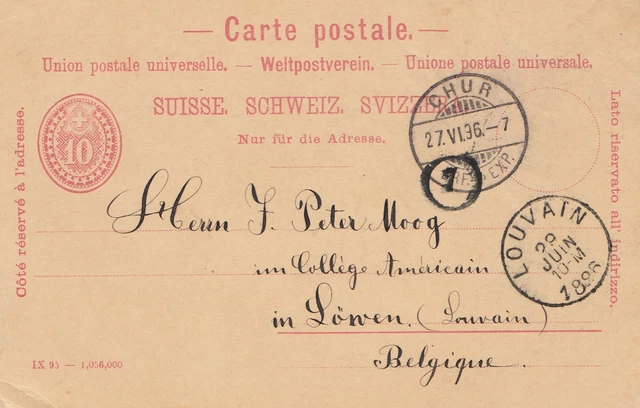 — Carte postale. —
Union postale universelle. — Weltpostverein. — Unione postale universale.
SUISSE. SCHWEIZ. SVIZZE
Nur für die Adresse.
Côté réservé à l'adresse.
Lato riservato all' indirizzo.
10
CHUR
27.VI.96.–7
EXP.
1
LOUVAIN
29
JUIN
10-M
1896
Herrn J. Peter Moog
im Collège Américain
in Löwen. (Louvain)
Belgique.
IX 95 — 1,056,000